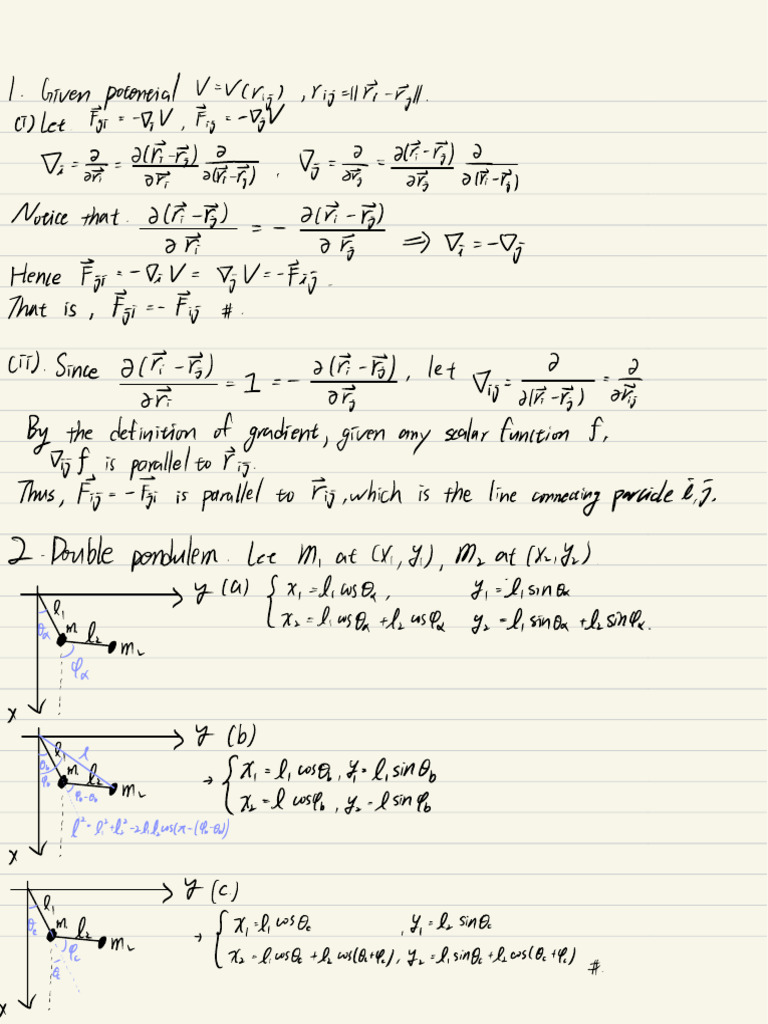 1. Given potential V=V(r_ij), r_ij=||r⃗_i-r⃗_j||.
(i) Let F⃗_ji = -∇_i V, F⃗_ij = -∇_j V
∇_i = ∂/∂r⃗_i = ∂(r⃗_i-r⃗_j)/∂r⃗_i ∂/∂(r⃗_i-r⃗_j), ∇_j = ∂/∂r⃗_j = ∂(r⃗_i-r⃗_j)/∂r⃗_j ∂/∂(r⃗_i-r⃗_j)
Notice that ∂(r⃗_i-r⃗_j)/∂r⃗_i = - ∂(r⃗_i-r⃗_j)/∂r⃗_j ⟹ ∇_i = -∇_j
Hence F⃗_ji = -∇_i V = ∇_j V = -F⃗_ij.
That is, F⃗_ji = - F⃗_ij #.
(ii). Since ∂(r⃗_i-r⃗_j)/∂r⃗_i = 1 = - ∂(r⃗_i-r⃗_j)/∂r⃗_j, let ∇_ij = ∂/∂(r⃗_i-r⃗_j) = ∂/∂r⃗_ij
By the definition of gradient, given any scalar function f,
∇_ij f is parallel to r⃗_ij.
Thus, F⃗_ij = -F⃗_ji is parallel to r⃗_ij, which is the line connecting particle i, j.
2. Double pendulem. Let m_1 at (x_1, y_1), m_2 at (x_2, y_2)
y (a) { x_1 = l_1 cosθ_a, y_1 = l_1 sinθ_a
x_2 = l_1 cosθ_a + l_2 cosφ_a y_2 = l_1 sinθ_a + l_2 sinφ_a.
l_1
θ_a m l_2 m_2
φ_a
x
y (b)
l_1 l
θ_b φ_b m l_2 m_2
φ_b-θ_b
→ { x_1 = l_1 cosθ_b, y_1 = l_1 sinθ_b
x_2 = l cosφ_b, y_2 = l sinφ_b
l² = l_1² + l_2² - 2l_1l_2 cos(π-(φ_b-θ_b))
x
y (c)
l_1
θ_c m l_2 m_2
φ_c
θ_c
→ { x_1 = l_1 cosθ_c, y_1 = l_2 sinθ_c
x_2 = l_1 cosθ_c + l_2 cos(θ_c+φ_c), y_2 = l_1 sinθ_c + l_2 cos(θ_c+φ_c) #.
x